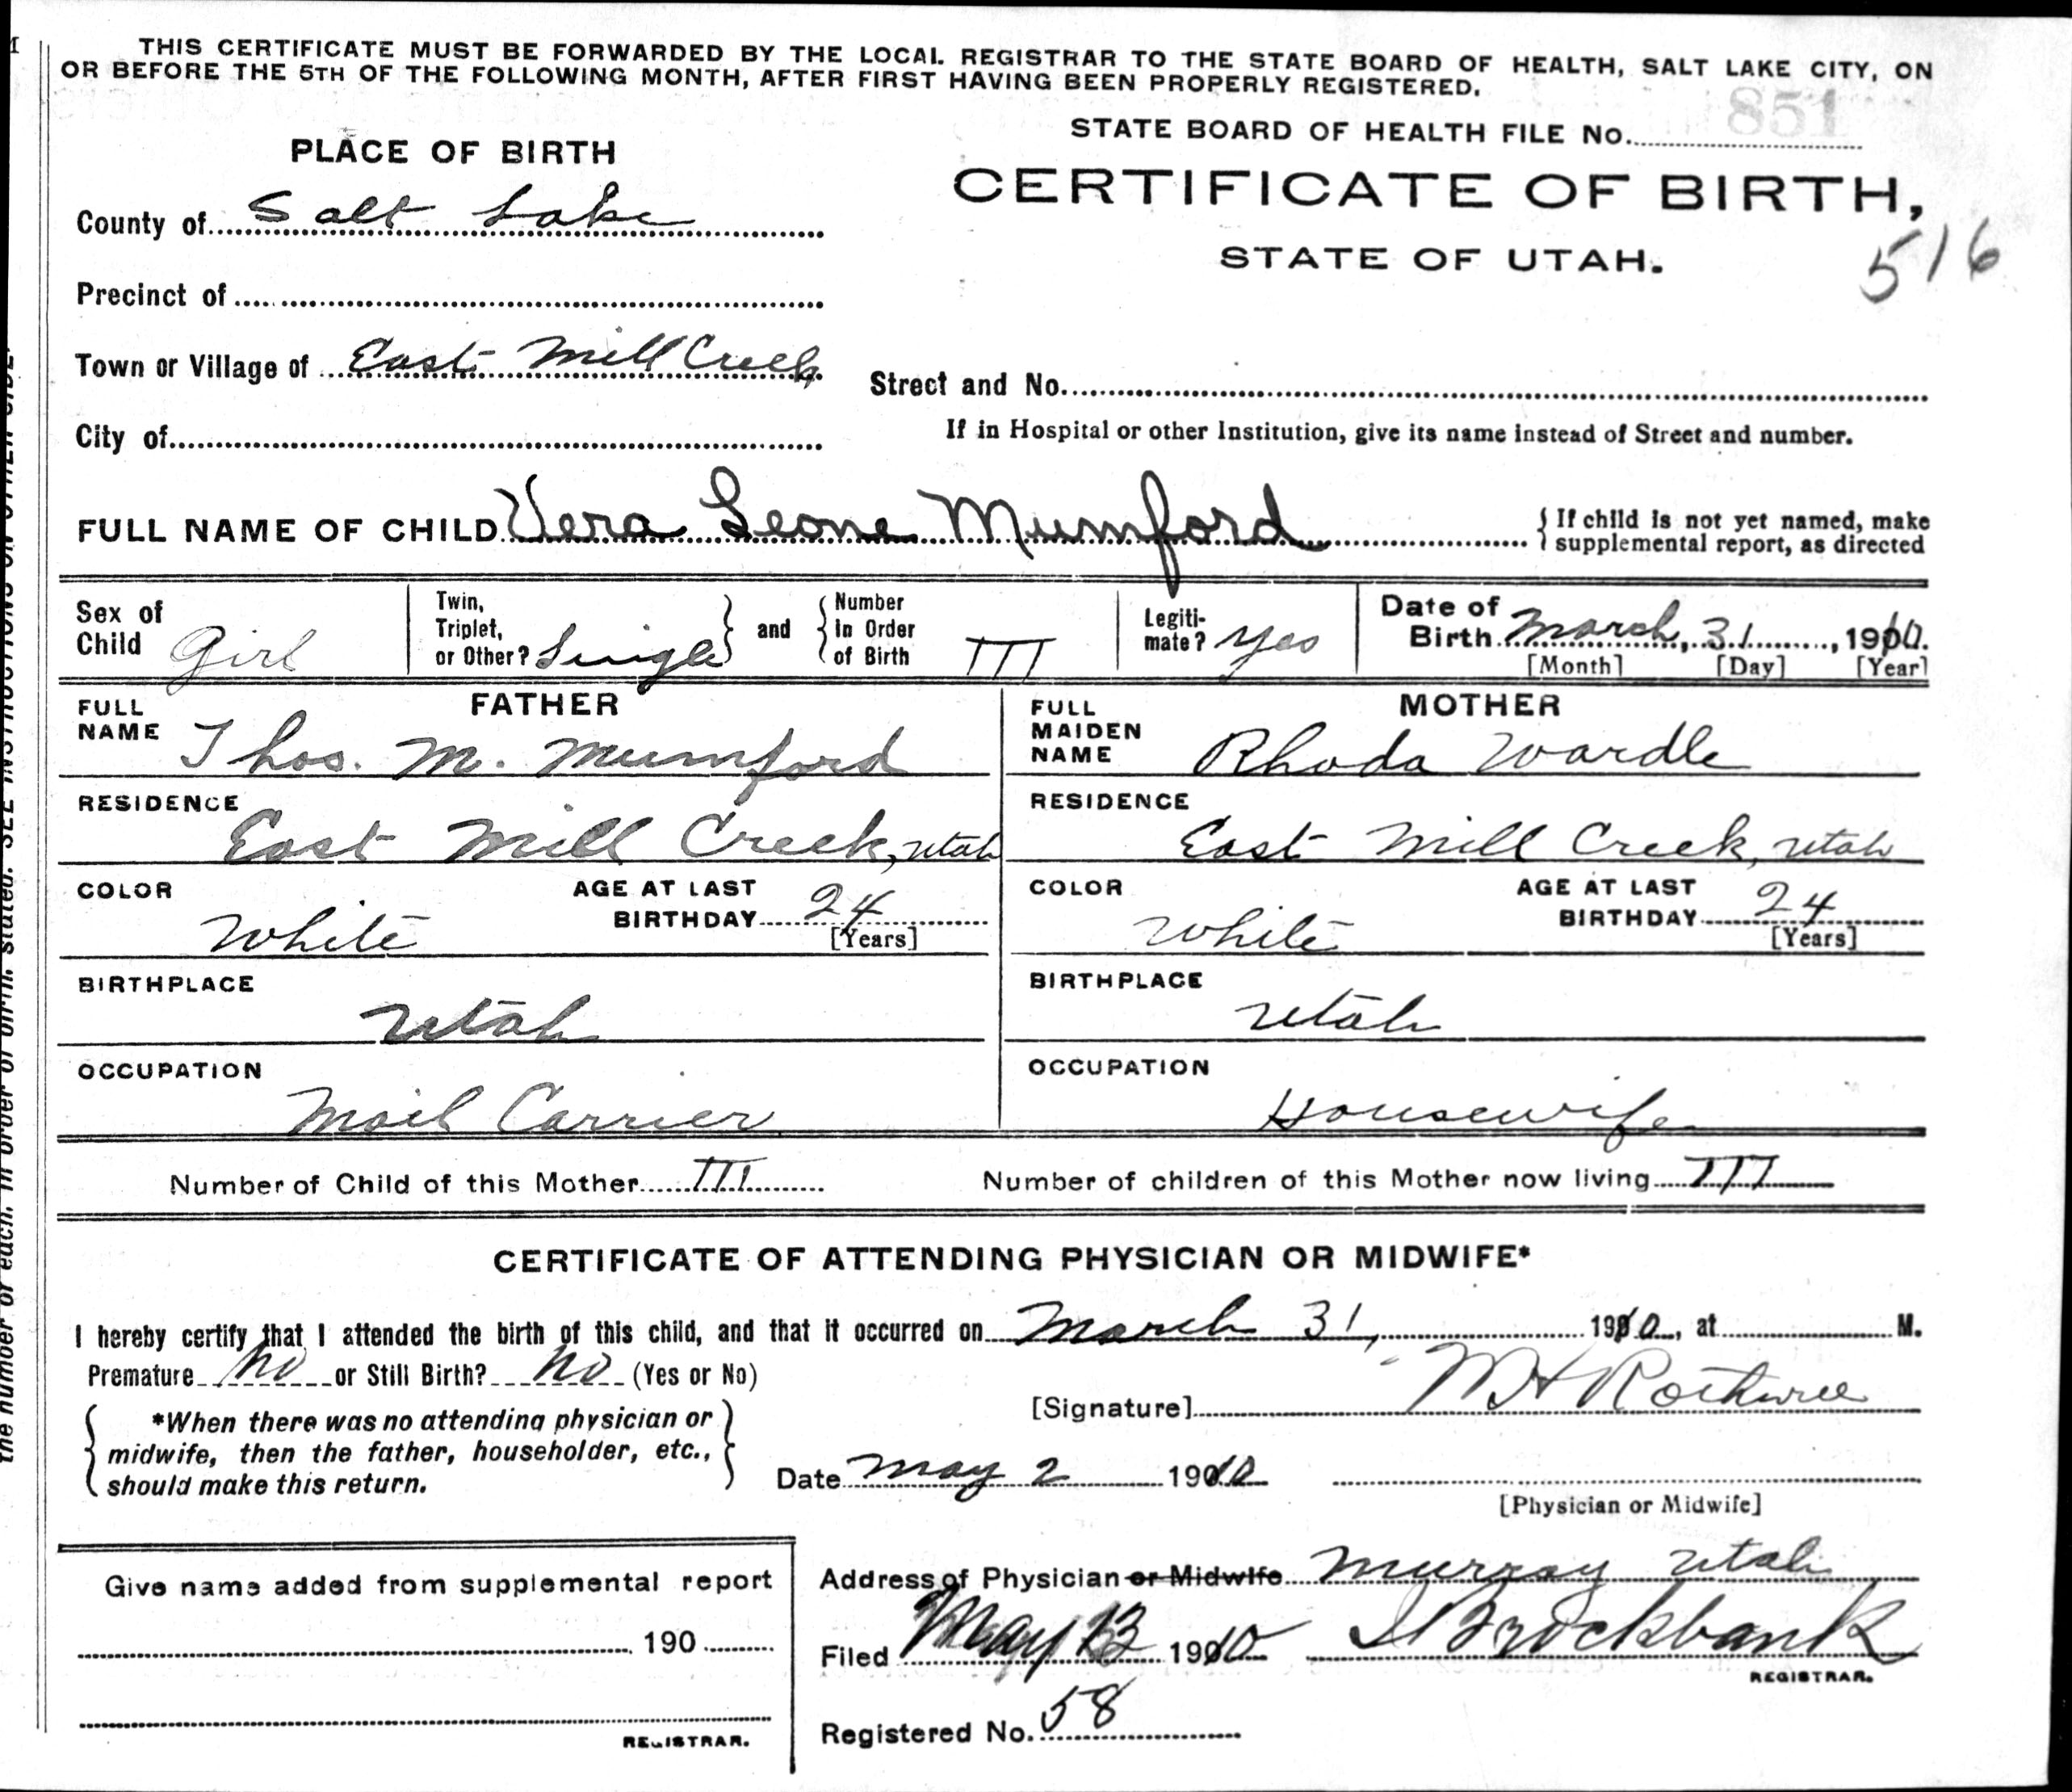 THIS CERTIFICATE MUST BE FORWARDED BY THE LOCAL REGISTRAR TO THE STATE BOARD OF HEALTH, SALT LAKE CITY, ON
OR BEFORE THE 5TH OF THE FOLLOWING MONTH, AFTER FIRST HAVING BEEN PROPERLY REGISTERED.
STATE BOARD OF HEALTH FILE No. 851
PLACE OF BIRTH
CERTIFICATE OF BIRTH,
STATE OF UTAH.
516
County of Salt Lake
Precinct of
Town or Village of East Mill Creek
Street and No.
City of
If in Hospital or other Institution, give its name instead of Street and number.
FULL NAME OF CHILD Vera Leone Mumford
{ If child is not yet named, make
supplemental report, as directed
Sex of Child Girl
Twin, Triplet, or Other? Single } and { Number in Order of Birth III
Legiti-mate? Yes
Date of Birth March, 31, 1910.
[Month] [Day] [Year]
FATHER
FULL NAME Thos. M. Mumford
RESIDENCE
East Mill Creek, Utah
COLOR White
AGE AT LAST BIRTHDAY 24
[Years]
BIRTHPLACE
Utah
OCCUPATION
Mail Carrier
MOTHER
FULL MAIDEN NAME Rhoda Wardle
RESIDENCE
East Mill Creek, Utah
COLOR White
AGE AT LAST BIRTHDAY 24
[Years]
BIRTHPLACE
Utah
OCCUPATION
Housewife
Number of Child of this Mother III
Number of children of this Mother now living III
CERTIFICATE OF ATTENDING PHYSICIAN OR MIDWIFE*
I hereby certify that I attended the birth of this child, and that it occurred on March 31, 1910, at M.
Premature No or Still Birth? No (Yes or No)
{ *When there was no attending physician or
midwife, then the father, householder, etc.,
should make this return. }
[Signature] Rothwell
Date May 2 1910
[Physician or Midwife]
Give name added from supplemental report
190
REGISTRAR.
Address of Physician or Midwife Murray Utah
Filed May 13 1910 Brockbank
REGISTRAR.
Registered No. 58